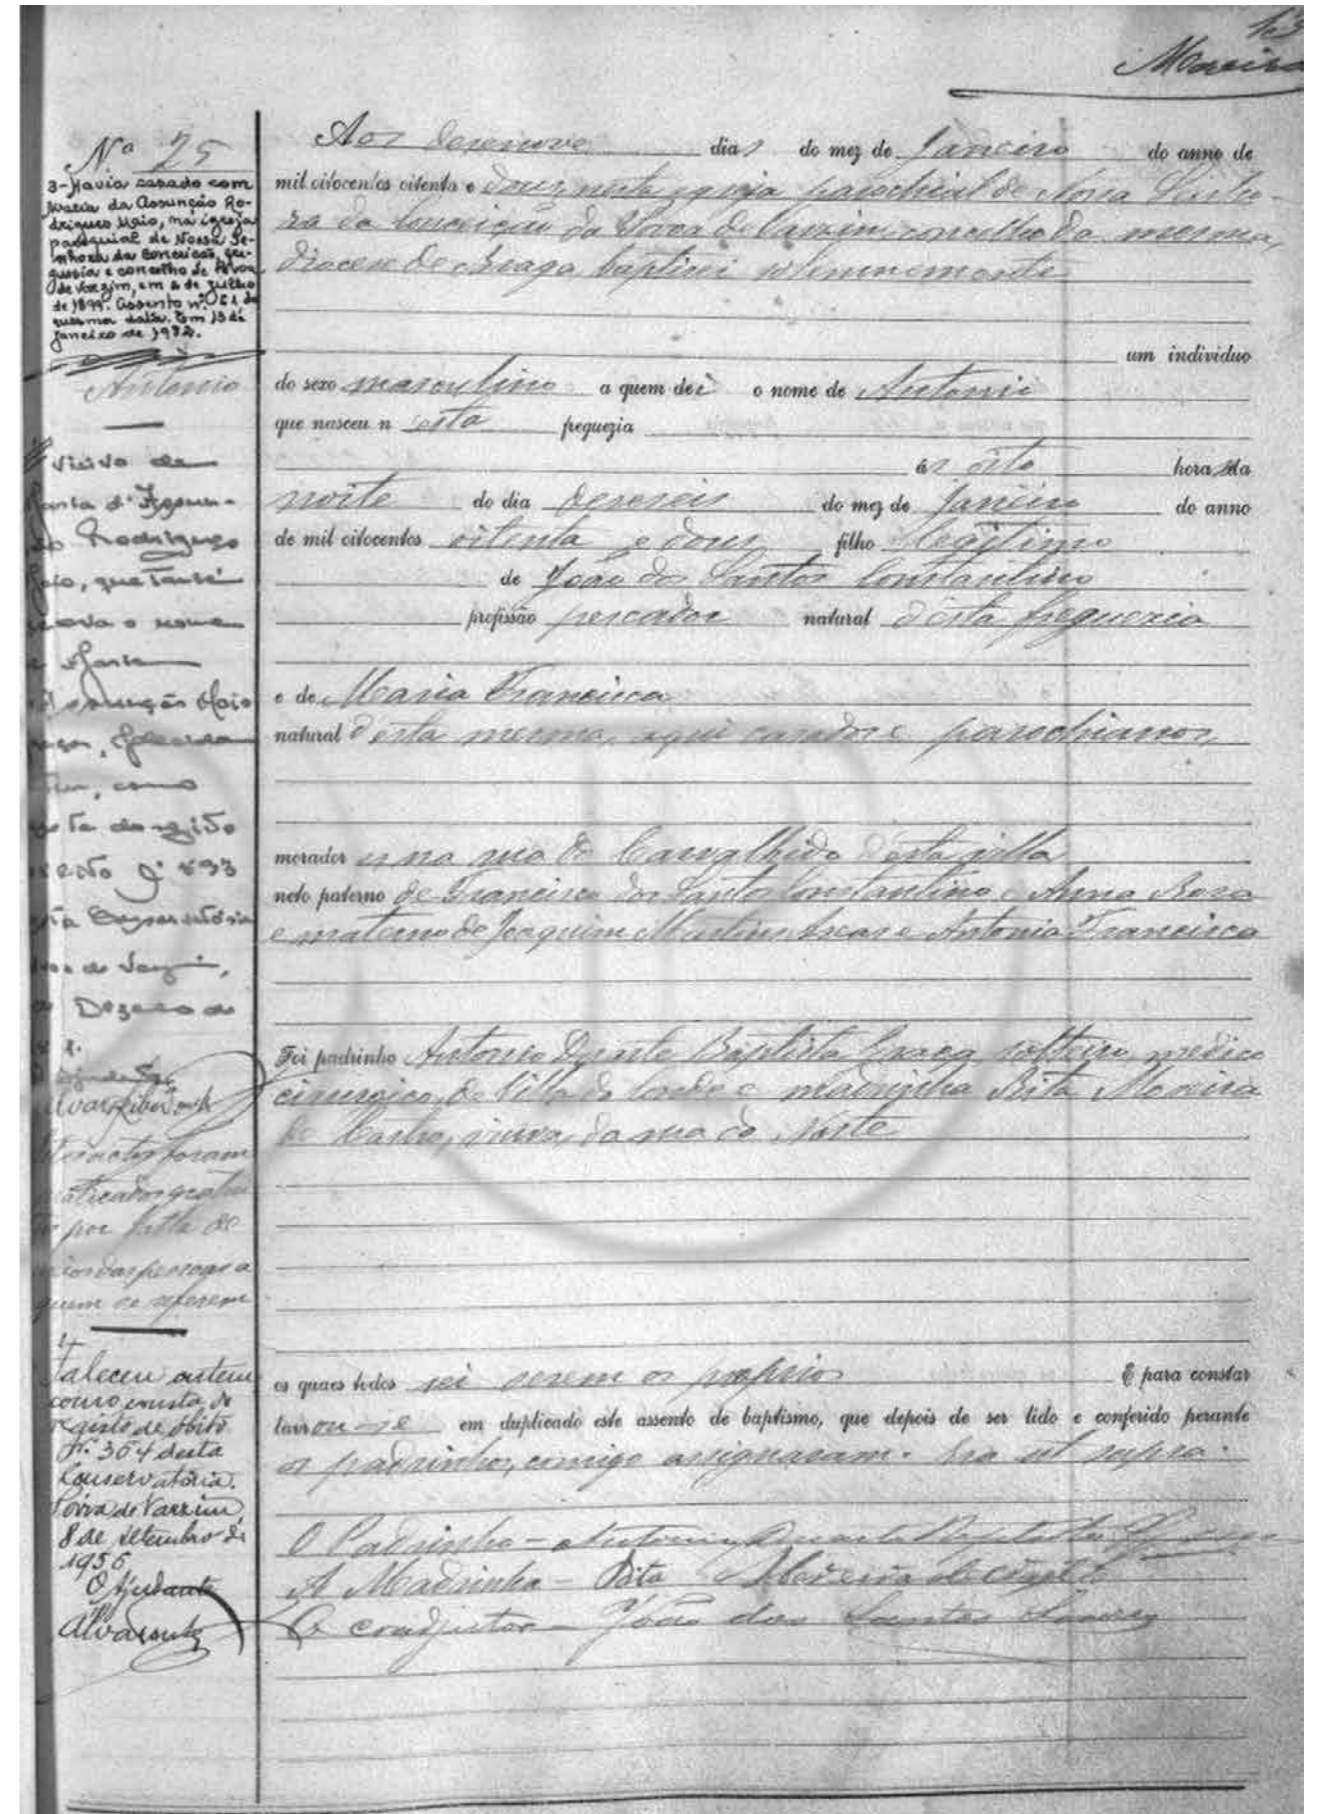 13
Moreira
Nº 25
3-Havia casado com
Maria da Assunção Ro-
drigues Maio, na igreja
paroquial de Nossa Se-
nhora da Conceição, fre-
guesia e concelho de Póvoa
de Varzim, em 2 de julho
de 1899. Assento nº 61 da
mesma data. Em 13 de
Janeiro de 1972.
Antonio
Viuvo de
Maria d'Assun-
ção Rodrigues
Maio, que també
usava o nome
de Maria
Assunção Maio
como
registo
nº 893
Conservatória
de Varzim,
Dezembro de
Estes actos foram
praticados gratui-
por falta de
das pessoas a
quem se referem
Faleceu ontem
como consta do
registo de óbito
nº 364 desta
Conservatória.
Póvoa de Varzim,
8 de setembro de
1956
O Ajudante
Aos dezenove dias do mez de Janeiro do anno de
mil oitocentos oitenta e dous, nesta egreja parochial de Nossa Senho-
ra da Conceição da Povoa de Varzim concelho da mesma,
diocese de Braga baptizei solemnemente
um individuo
do sexo masculino a quem dei o nome de Antonio
que nasceu n esta freguezia
ás oito horas da
noite do dia dezeseis do mez de Janeiro do anno
de mil oitocentos oitenta e dous filho legitimo
de João dos Santos Constantino
profissão pescador natural d'esta freguezia
e de Maria Francisca
natural d'esta mesma, aqui casados e parochianos,
morador es na rua do Carvalhido d'esta villa
neto paterno de Francisco dos Santos Constantino e Anna Rosa
e materno de Joaquim Martins e Antonia Francisca
Foi padrinho Antonio Duarte Baptista Graça solteiro, medico
cirurgico, de Villa do Conde e madrinha Rita Moreira
de Castro, viuva, da rua do Norte
os quaes todos sei serem os proprios E para constar
lavrou-se em duplicado este assento de baptismo, que depois de ser lido e conferido perante
os padrinhos, comigo assignaram. Era ut supra.
O Padrinho - Antonio Duarte Baptista Graça
A Madrinha - Rita Moreira de Castro
O coadjutor - João dos Santos